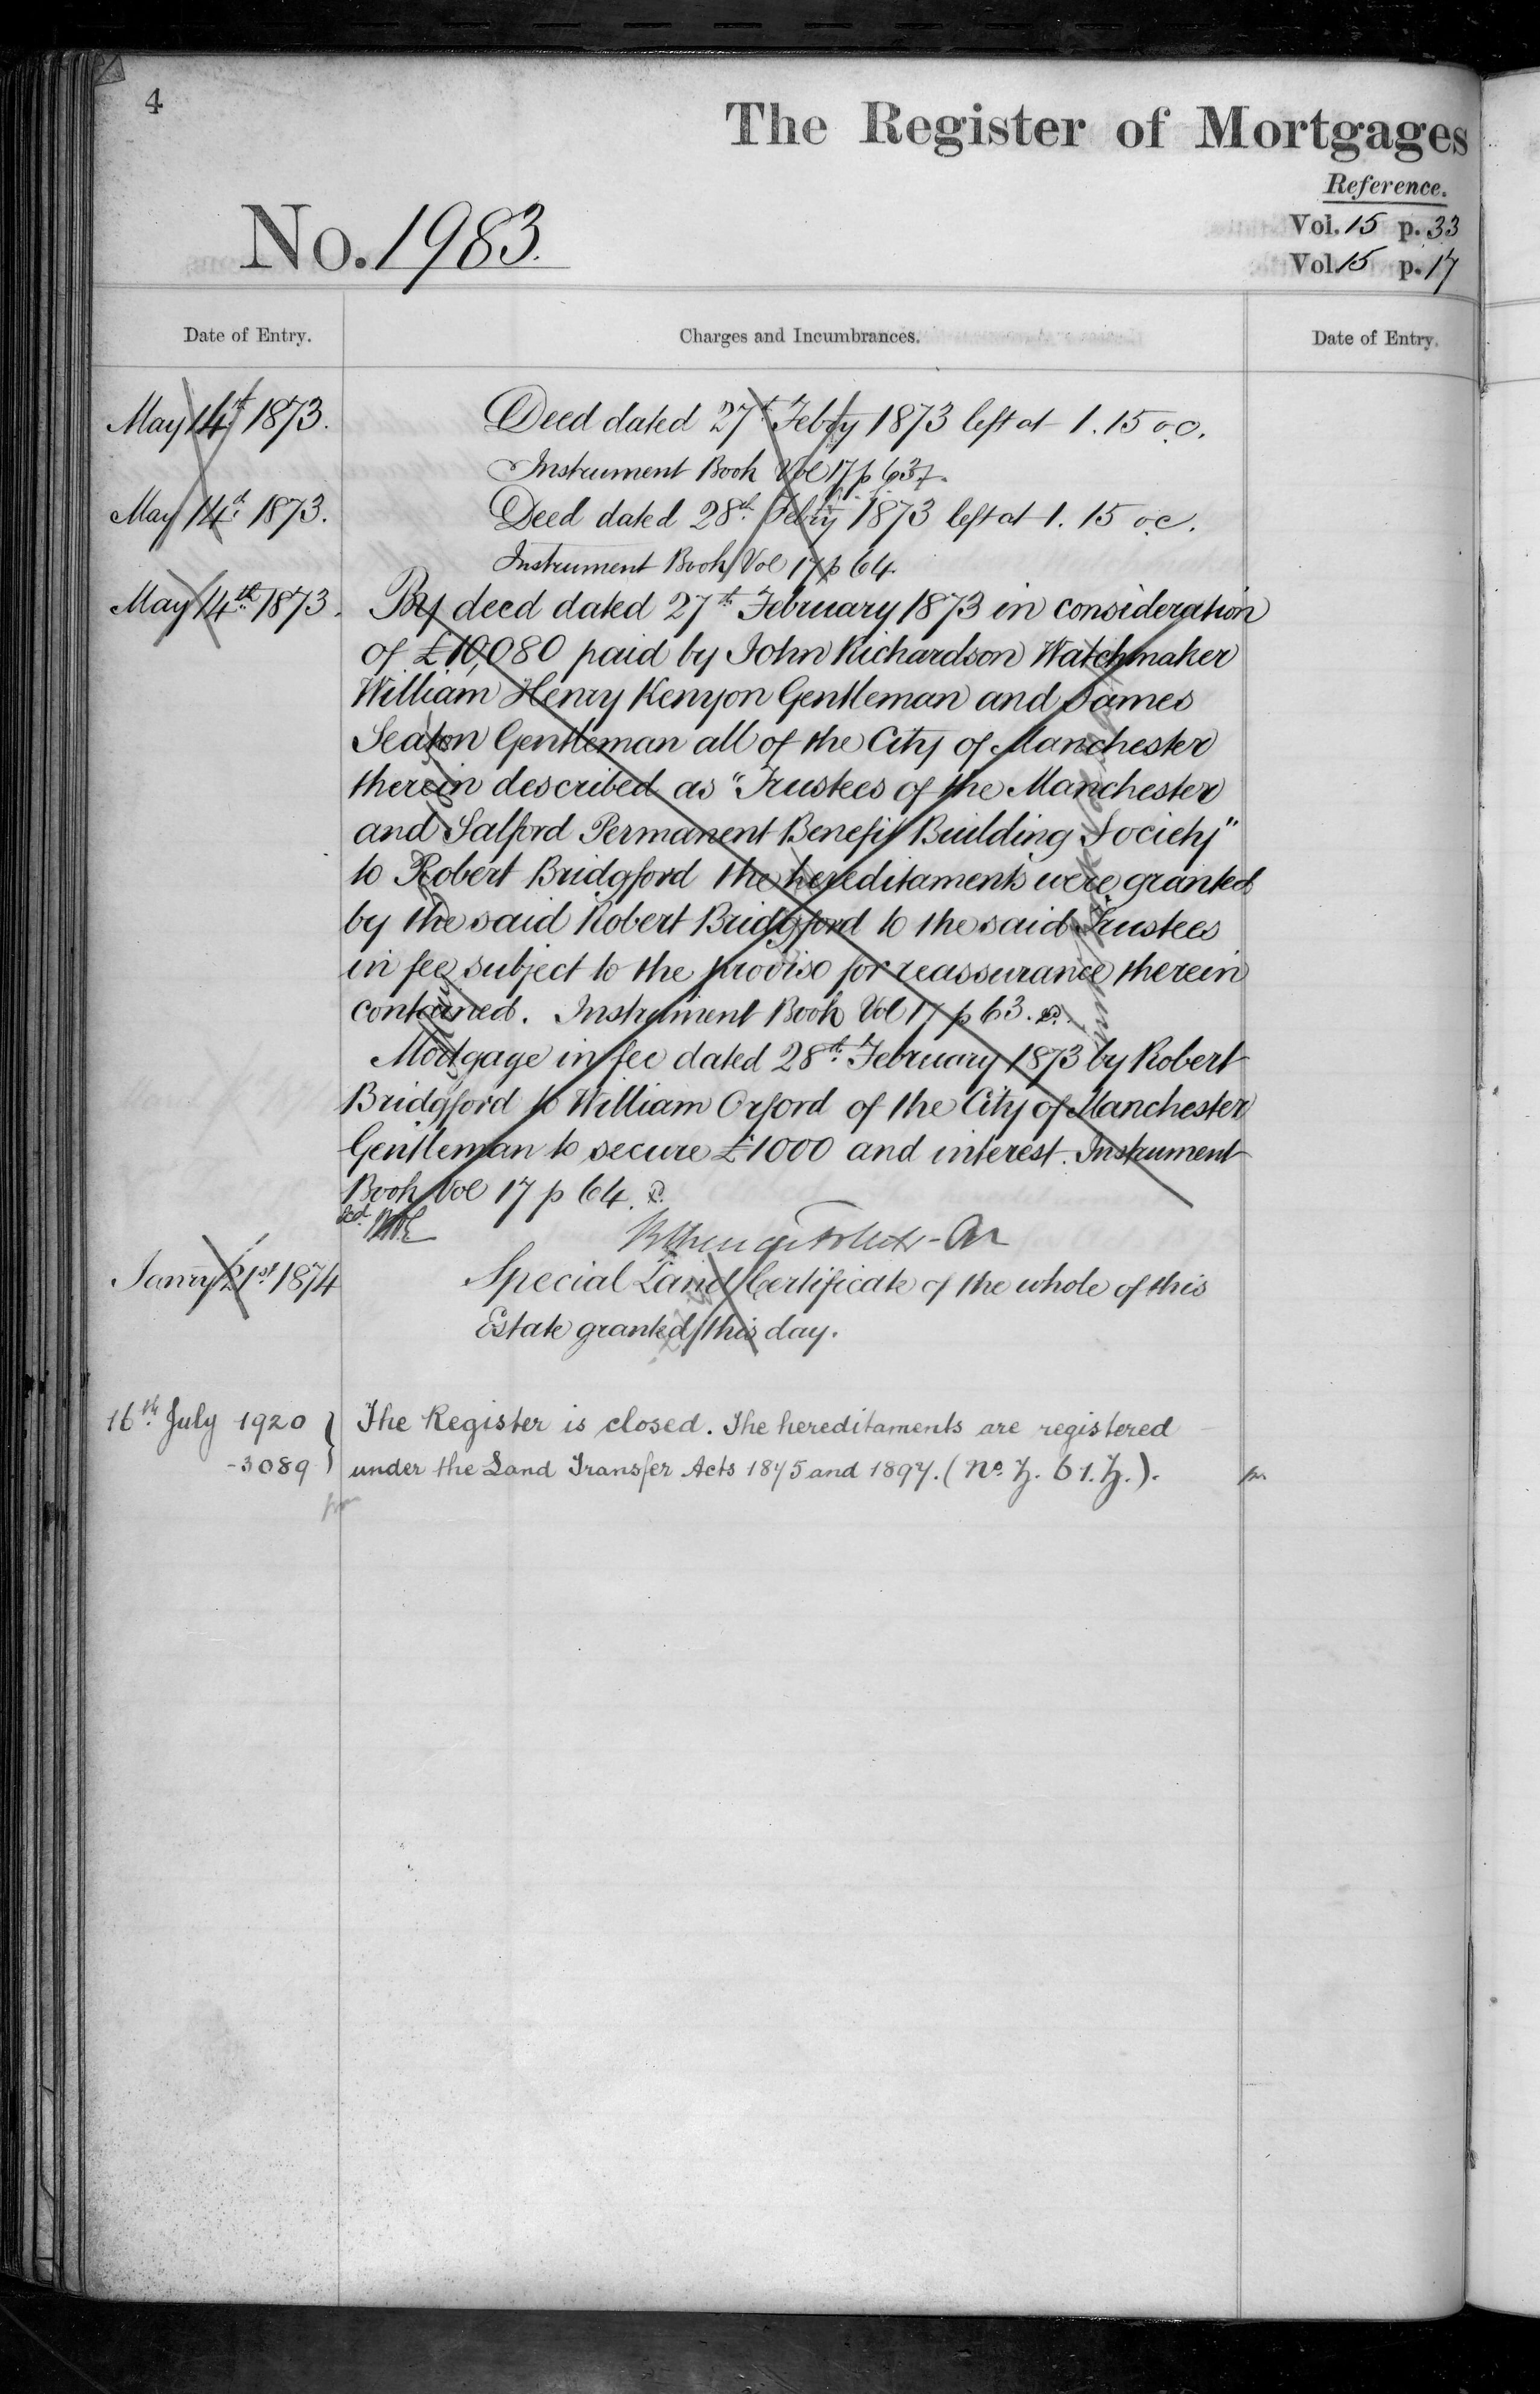 4
The Register of Mortgages
Reference.
No. 1983.
Vol. 15 p. 33
Vol. 15 p. 17
Date of Entry.
Charges and Incumbrances.
Date of Entry.
May 14th 1873.
Deed dated 27th Febry 1873 left at 1.15 o.c.
Instrument Book Vol 17 p 63
May 14th 1873.
Deed dated 28th Febry 1873 left at 1.15 o.c.
Instrument Book Vol 17 p 64.
May 14th 1873.
By deed dated 27th February 1873 in consideration
of £10,080 paid by John Richardson Watchmaker
William Henry Kenyon Gentleman and James
Seaton Gentleman all of the City of Manchester
therein described as "Trustees of the Manchester
and Salford Permanent Benefit Building Society"
to Robert Bridgford the hereditaments were granted
by the said Robert Bridgford to the said Trustees
in fee subject to the proviso for reassurance therein
contained. Instrument Book Vol 17 p 63.
Mortgage in fee dated 28th February 1873 by Robert
Bridgford to William Orford of the City of Manchester
Gentleman to secure £1000 and interest. Instrument
Book Vol 17 p 64.
Janry 21st 1874
Special Land Certificate of the whole of this
Estate granted this day.
16th July 1920
The Register is closed. The hereditaments are registered
-3089
under the Land Transfer Acts 1875 and 1897. (No.